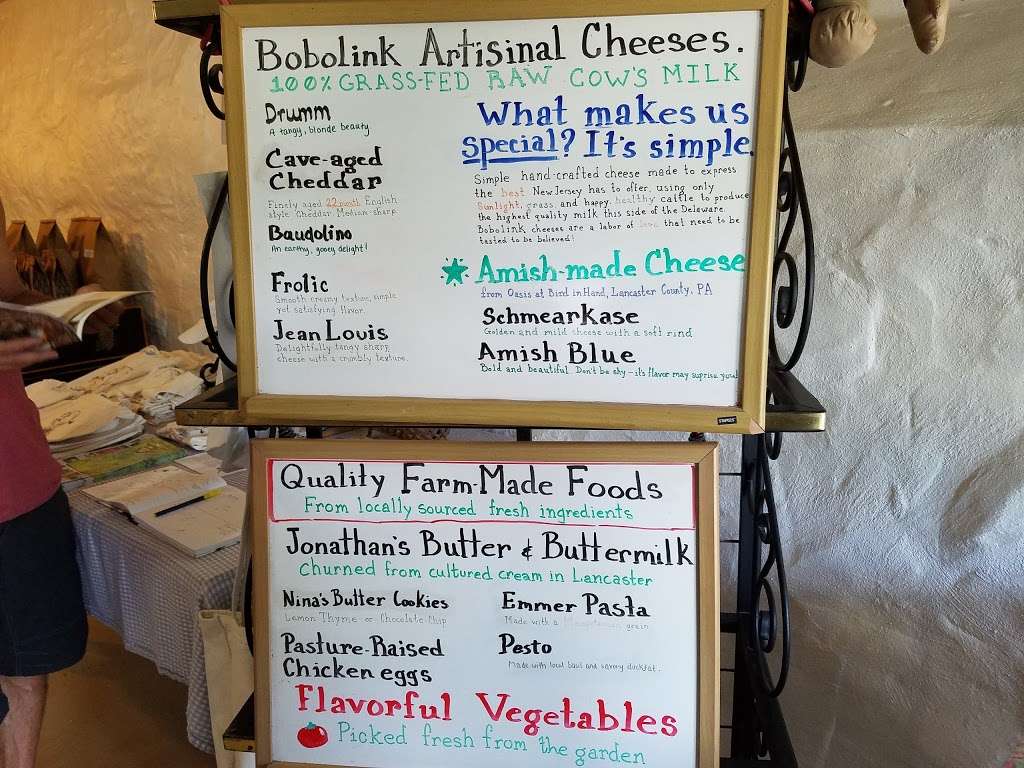 Bobolink Artisinal Cheeses.
100% GRASS-FED RAW COW'S MILK
Drumm
A tangy, blonde beauty
Cave-aged
Cheddar
Finely aged 22 month English
style Cheddar Medium-sharp
Baudolino
An earthy, gooey delight!
Frolic
Smooth creamy texture, simple
yet satisfying flavor
Jean Louis
Delightfully tangy sharp
cheese with a crumbly texture.
What makes us
special? It's simple.
Simple hand-crafted cheese made to express
the best New Jersey has to offer, using only
sunlight, grass, and happy, healthy cattle to produce
the highest quality milk this side of the Delaware.
Bobolink cheeses are a labor of love that need to be
tasted to be believed!
Amish-made Cheese
from Oasis at Bird in Hand, Lancaster County, PA
Schmearkase
Golden and mild cheese with a soft rind
Amish Blue
Bold and beautiful. Don't be shy - it's flavor may suprise you!
STAPLES
Quality Farm-Made Foods
From locally sourced fresh ingredients
Jonathan's Butter & Buttermilk
Churned from cultured cream in Lancaster
Nina's Butter Cookies
Lemon Thyme or Chocolate Chip
Pasture-Raised
Chicken eggs
Emmer Pasta
Made with a grain
Pesto
Made with local basil and savory duckfat.
Flavorful Vegetables
Picked fresh from the garden